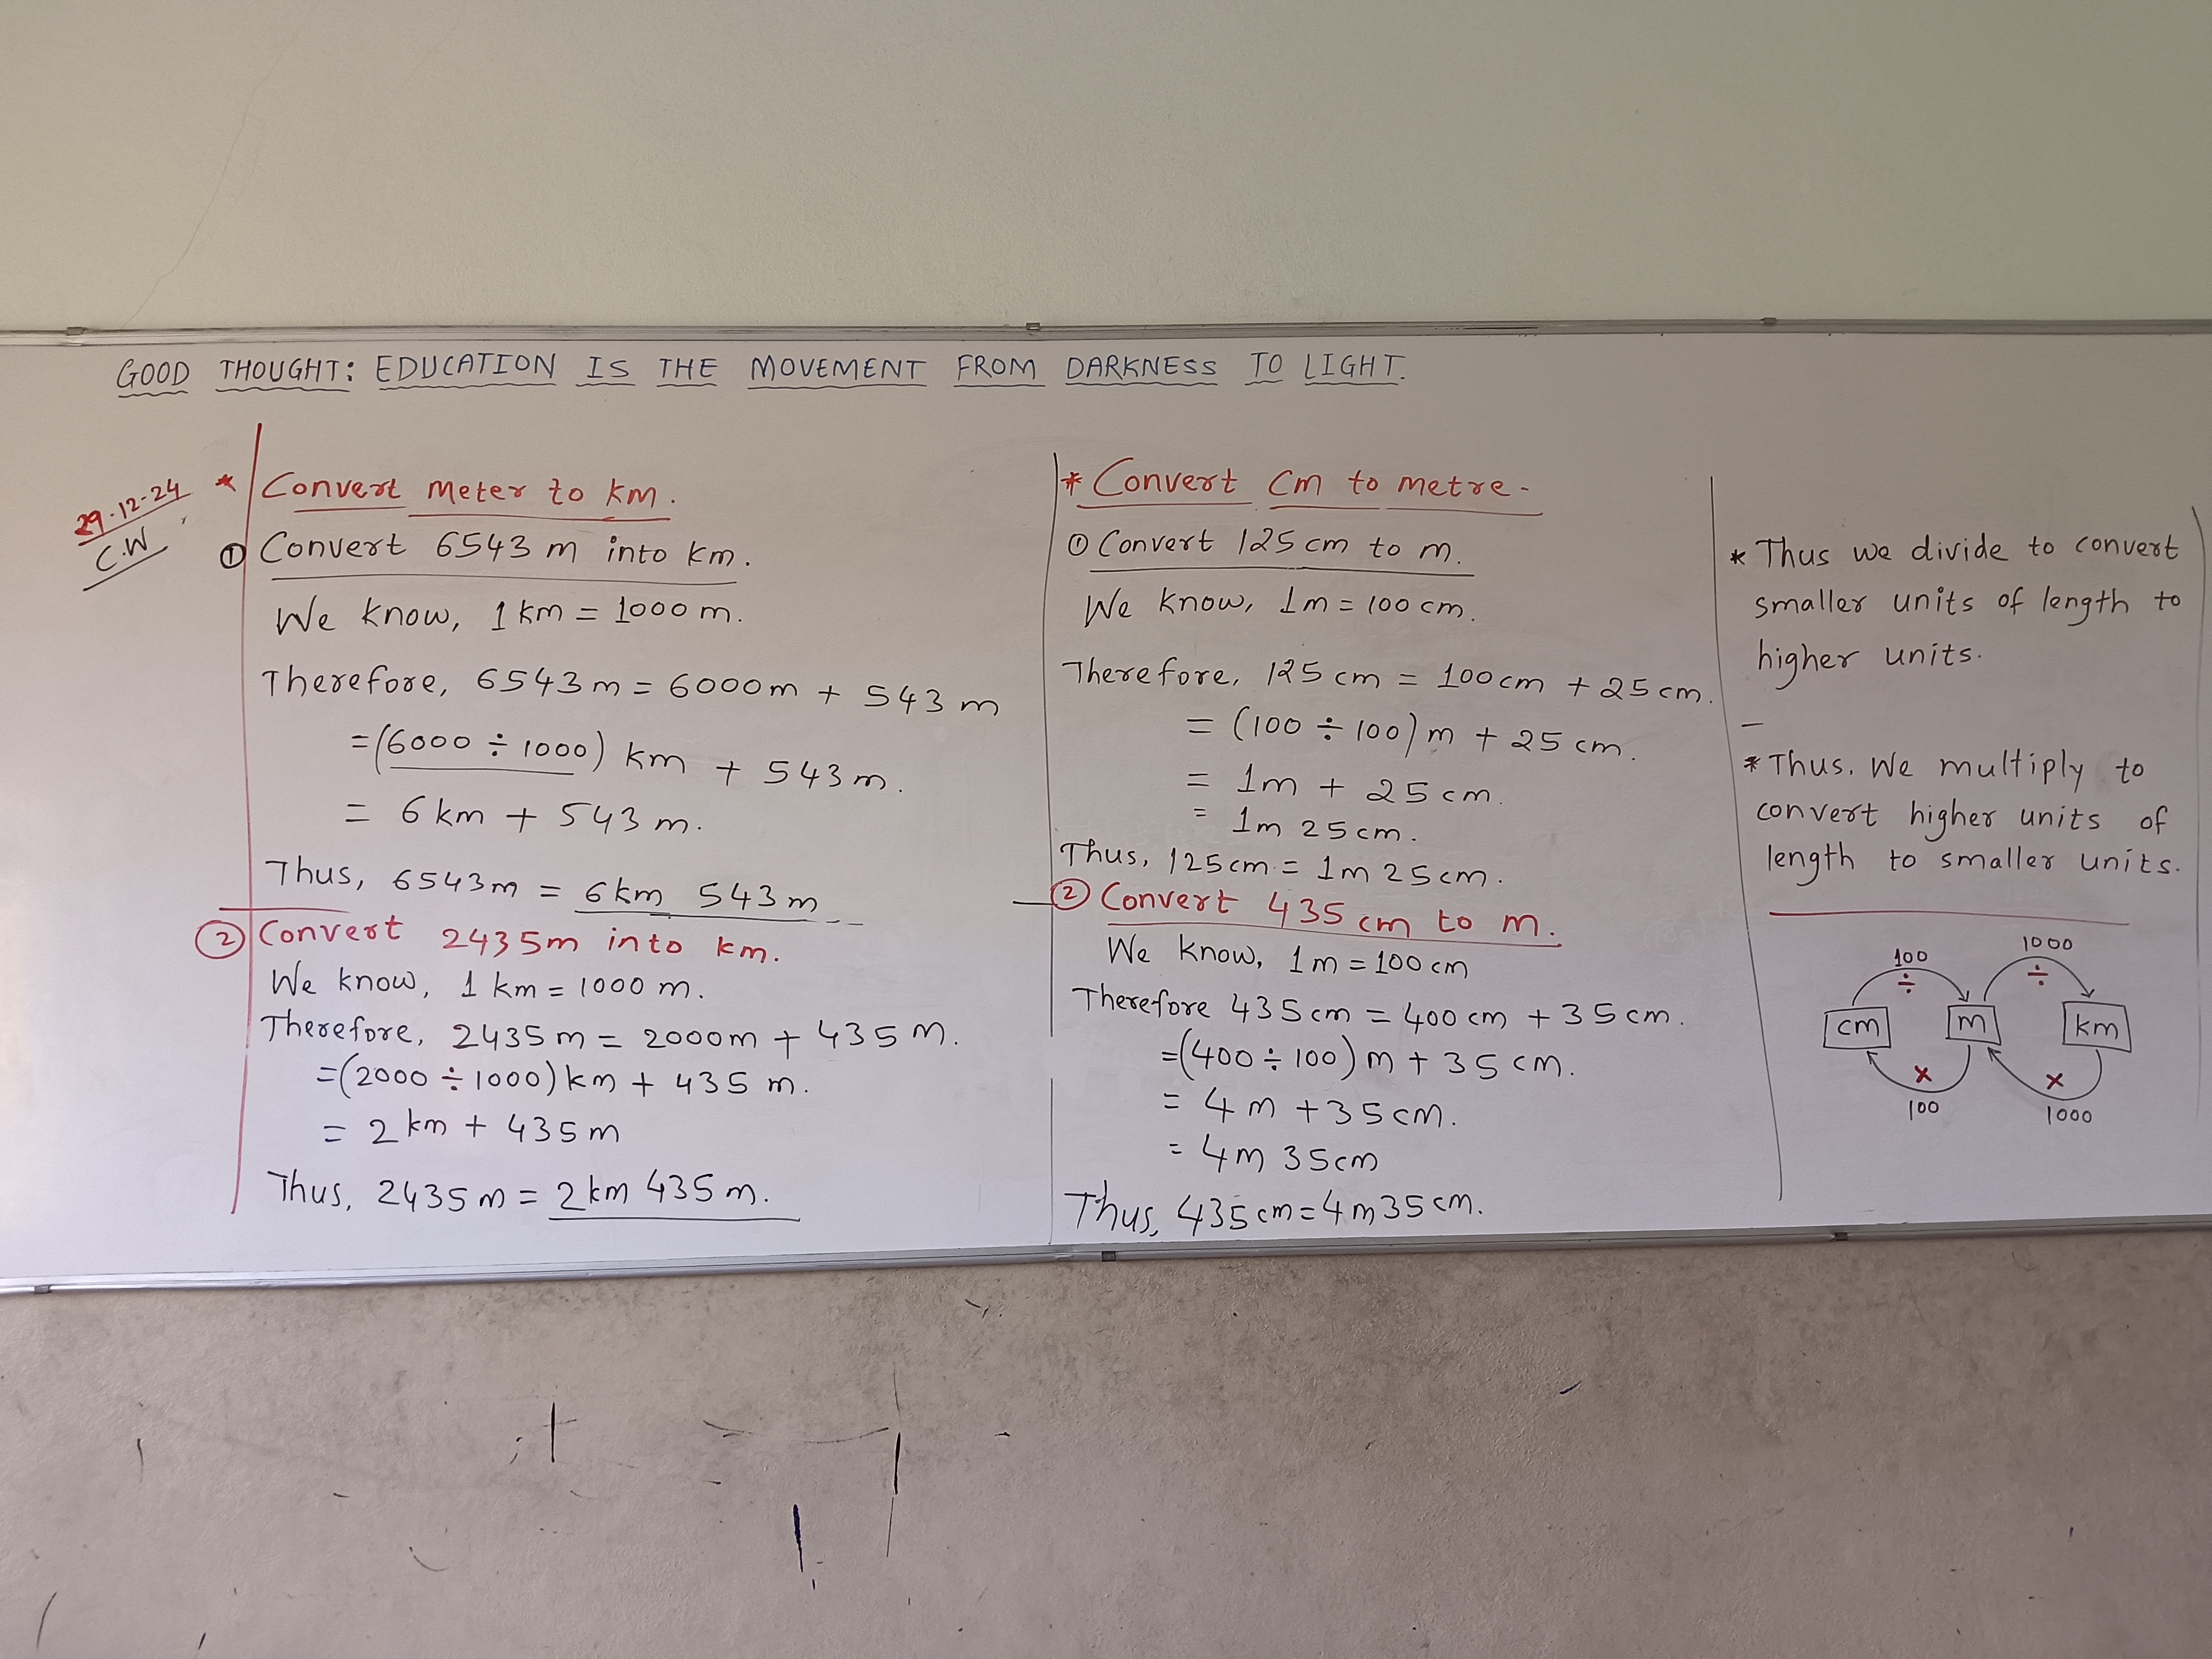 GOOD THOUGHT: EDUCATION IS THE MOVEMENT FROM DARKNESS TO LIGHT.
29-12-24
C.W
* Convert meter to km.
① Convert 6543 m into km.
We know, 1 km = 1000 m.
Therefore, 6543 m = 6000 m + 543 m
= (6000 ÷ 1000) km + 543 m.
= 6 km + 543 m.
Thus, 6543 m = 6 km 543 m
② Convert 2435 m into km.
We know, 1 km = 1000 m.
Therefore, 2435 m = 2000 m + 435 m.
= (2000 ÷ 1000) km + 435 m.
= 2 km + 435 m
Thus, 2435 m = 2 km 435 m.
* Convert Cm to metre -
① Convert 125 cm to m.
We know, 1m = 100 cm.
Therefore, 125 cm = 100 cm + 25 cm.
= (100 ÷ 100) m + 25 cm.
= 1m + 25 cm.
= 1m 25 cm.
Thus, 125 cm = 1m 25 cm.
② Convert 435 cm to m.
We know, 1 m = 100 cm
Therefore 435 cm = 400 cm + 35 cm.
= (400 ÷ 100) m + 35 cm.
= 4 m + 35 cm.
= 4 m 35 cm
Thus, 435 cm = 4 m 35 cm.
* Thus we divide to convert
smaller units of length to
higher units.
* Thus. We multiply to
convert higher units of
length to smaller units.
100 1000
÷ ÷
cm m km
× ×
100 1000